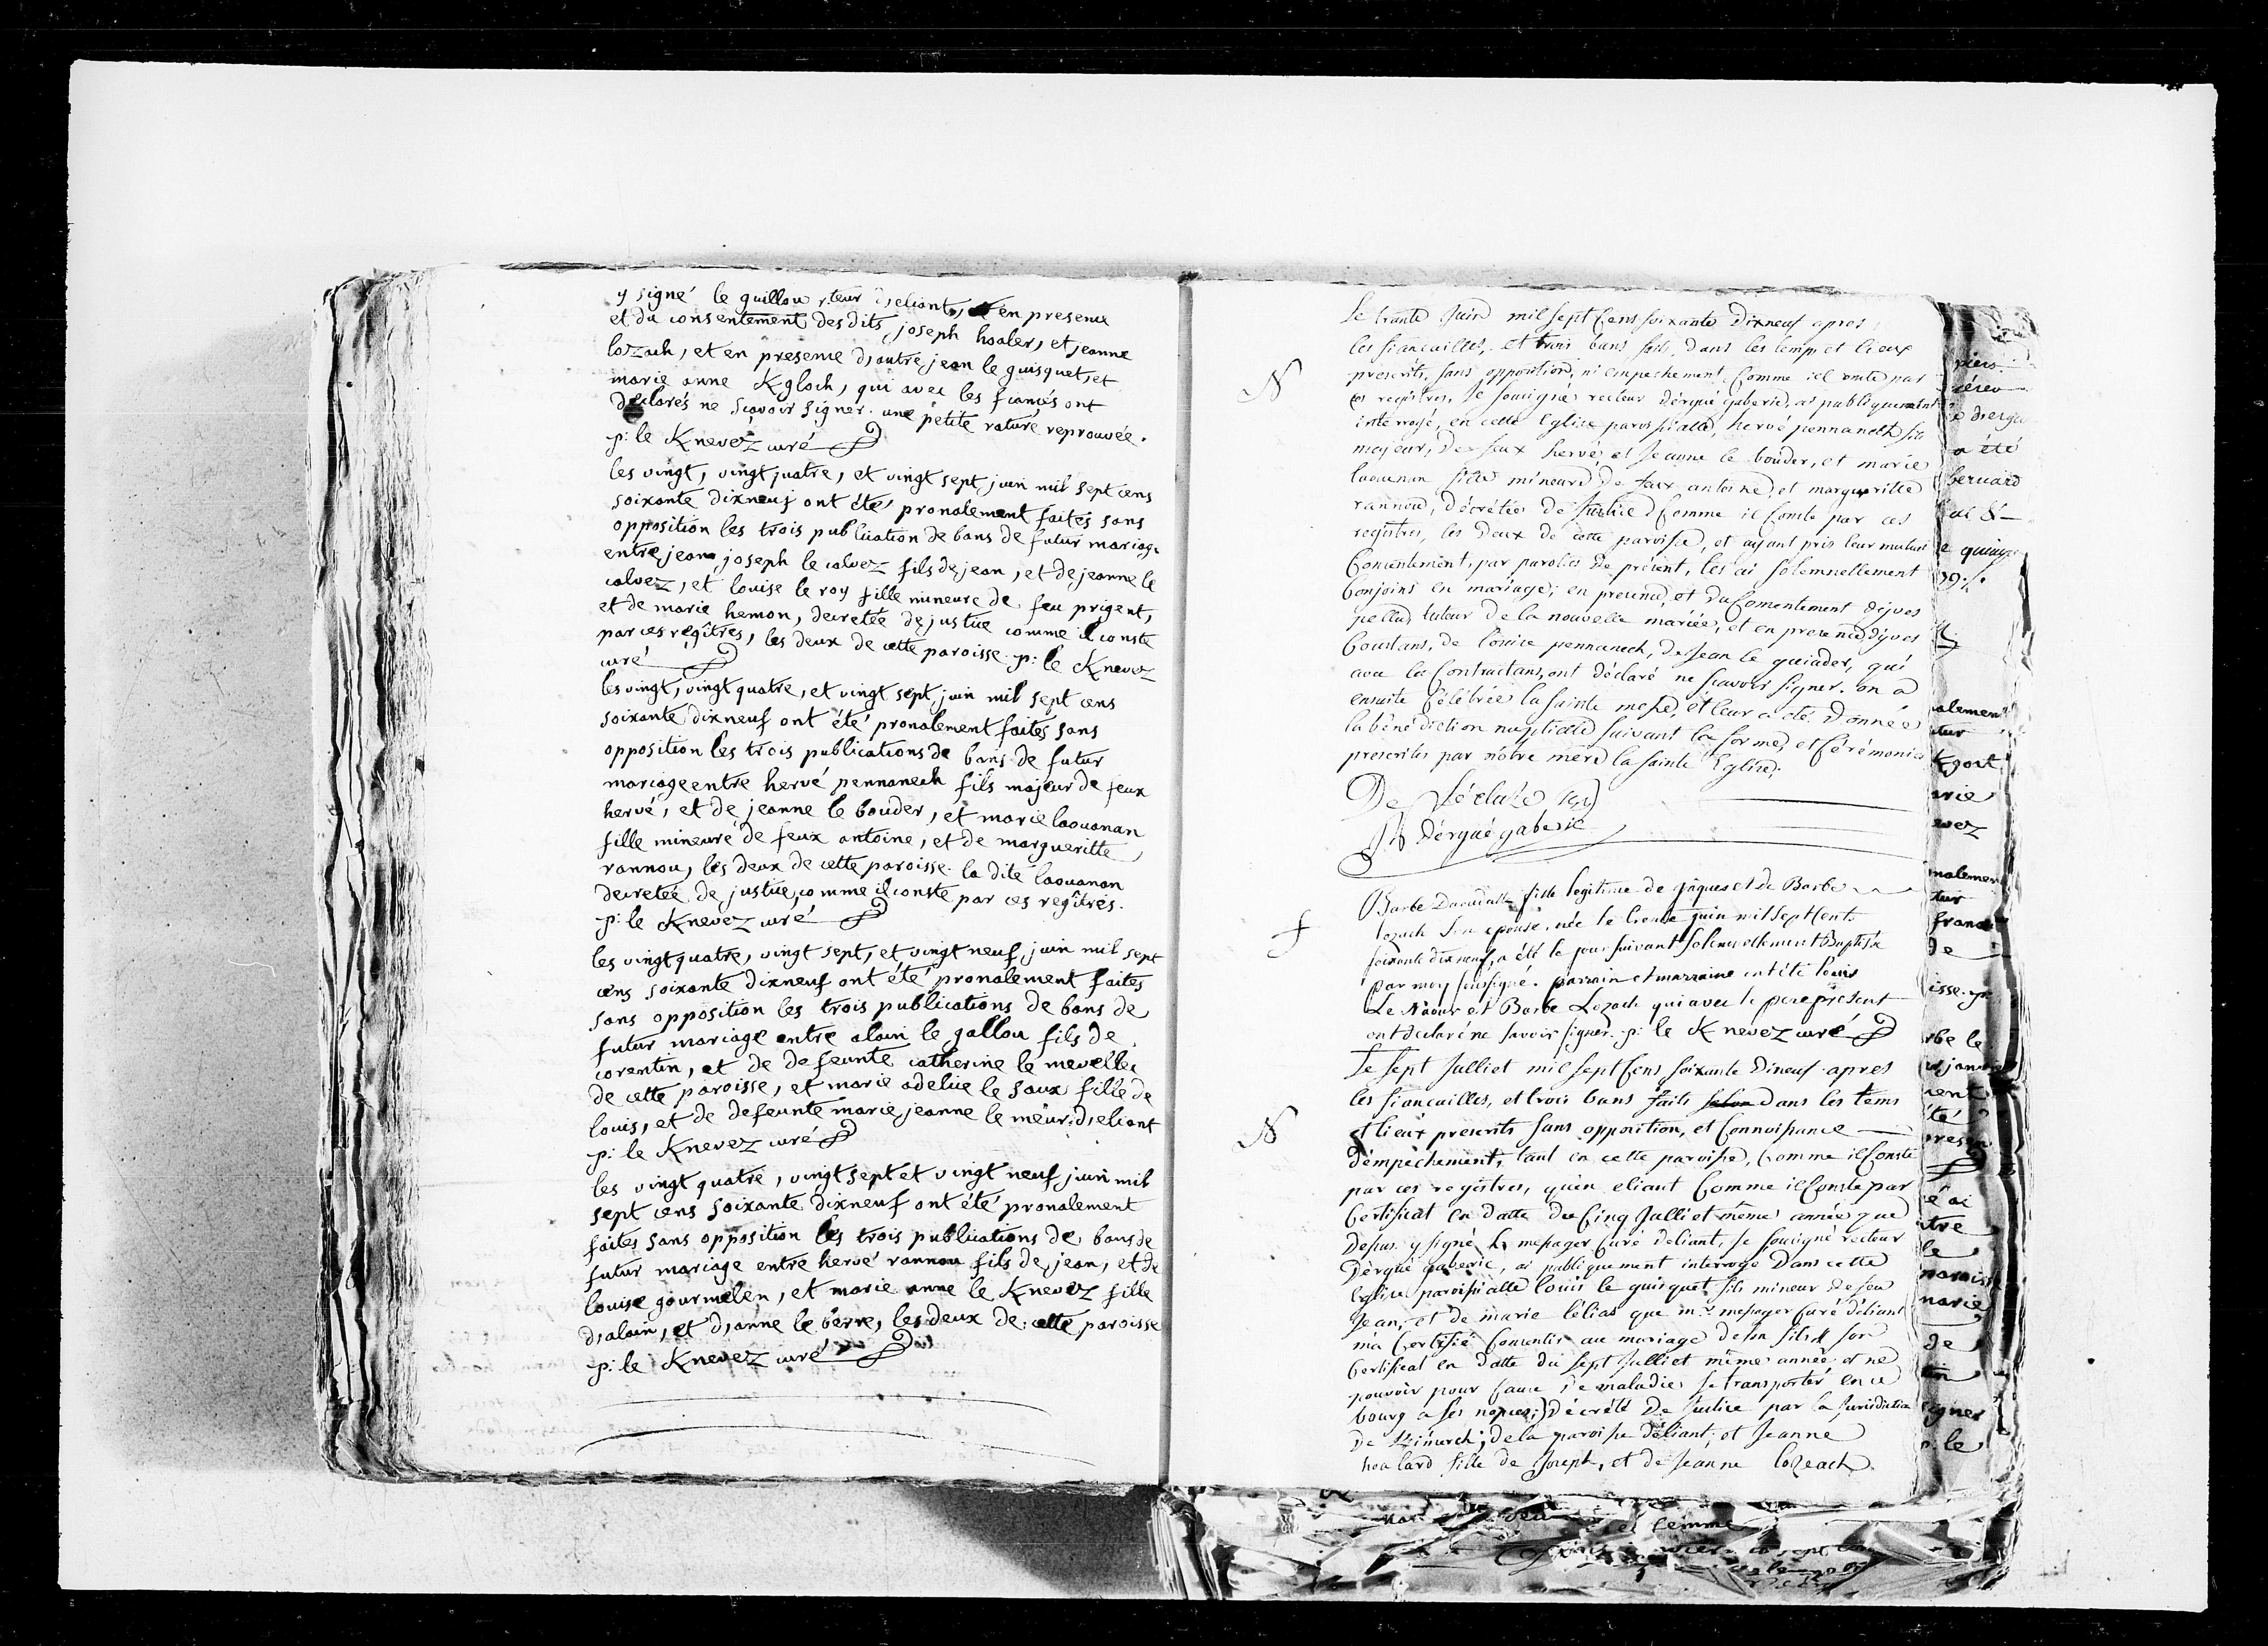 y signé le guillou r.teur d'eliant, et en presence
et du consentement des dits joseph hoaler, et jeanne
lozach, et en presence d'autre jean le guisquet, et
marie anne Kgloch, qui avec les fiancés ont
declarés ne sçavoir signer. une petite rature reprouvée.
p: le Knevez curé
les vingt, vingt quatre, et vingt sept juin mil sept cens
soixante dixneuf ont été pronalement faites sans
opposition les trois publication de bans de futur mariage
entre jean joseph le calvez fils de jean, et de jeanne le
calvez, et louise le roy fille mineure de feu prigent,
et de marie hemon, decretée de justice comme il conste
par ces régîtres, les deux de cette paroisse p: le Knevez
curé
les vingt, vingt quatre, et vingt sept juin mil sept cens
soixante dixneuf ont été pronalement faites sans
opposition les trois publications de bans de futur
mariage entre hervé pennanech fils majeur de feux
hervé, et de jeanne le bouder, et marie laouanan
fille mineure de feux antoine, et de margueritte
rannou, les deux de cette paroisse. la dite laouanan
decretée de justice, comme il conste par ces regîtres.
p: le Knevez curé
les vingt quatre, vingt sept, et vingt neuf juin mil sept
cens soixante dixneuf ont été pronalement faites
sans opposition les trois publications de bans de
futur mariage entre alain le gallou fils de
corentin, et de defeunte catherine le mevellec
de cette paroisse, et marie adelice le saux fille de
louis, et de defeunte marie jeanne le meur: d'eliant
p: le Knevez curé
les vingt quatre, vingt sept et vingt neuf juin mil
sept cens soixante dixneuf ont été pronalement
faites sans opposition les trois publications de bans de
futur mariage entre hervé rannou fils de jean, et de
louise gourmelen, et marie anne le Knevez fille
d'alain, et d'anne le berre, les deux de cette paroisse
p: le Knevez curé
Le trante Juin mil sept cens soixante dixneuf apres
les fiancailles, et trois bans faits, dans les temps et lieux
prescrits, sans opposition, ni empechement, comme il conste par
N
ces registres, Je soussigné recteur d'érgué gaberic, ai publiquement
interrogé, en cette Eglise paroissialle, hervé pennanech fils
majeur, de feux hervé et Jeanne le bouder, et marie
laouenan fille mineure de feux antoine, et margueritte
rannou, décrétée de Justice comme il conste par ces
registres, les deux de cette paroisse, et ayant pris leur mutuel
consentement, par paroles de présent, les ai solemnellement
conjoins en mariage; en presence, et du consentement d'yves
pellen tuteur de la nouvelle mariée, et en presence d'yves
Coustans, de louise pennanech, de Jean le guiader, qui
avec les contractans, ont déclaré ne scavoir signer. on a
ensuite célébrée la sainte messe, et leur a été donnée
la bénédiction nuptialle suivant la forme, et cérémonies
prescrites par nôtre mere la sainte Eglise.
D'érgué gaberic
Barbe fille legitime de jâques et de Barbe
f
lozach son épouse, née le trente juin mil sept cents
soixante dix neuf, a été le jour suivant solennellement Baptisée
par moy soussigné. parrain et marraine ont été louis
Le Naour et Barbe Lozach qui avec le pere present
ont declaré ne savoir signer. p: le Knevez curé
Le sept Julliet mil sept cens soixante dineuf apres
les fiancailles, et trois bans faits dans les tems
N
et lieux prescrits sans opposition, et connoissance
d'empêchement, tant en cette paroisse, comme il conste
par ces registres, qu'en eliant comme il conste par
certificat en datte du cinq Julliet même année que
dessus y signé le messager curé d'eliant, je soussigné recteur
d'érgué gaberic, ai publiquement interrogé dans cette
Eglise paroissialle louis le guisquet fils mineur de feu
Jean, et de marie lélias que mr. messager curé d'éliant
m'a certifié consentir au mariage de son fils son
certificat en datte du sept Julliet même année et ne
pouvoir pour cause de maladie se transporter en ce
bourg a ses nopces;) décrété de justice par la Jurisdiction
de de la paroisse d'éliant; et Jeanne
hoalard fille de Joseph, et de Jeanne lozeach